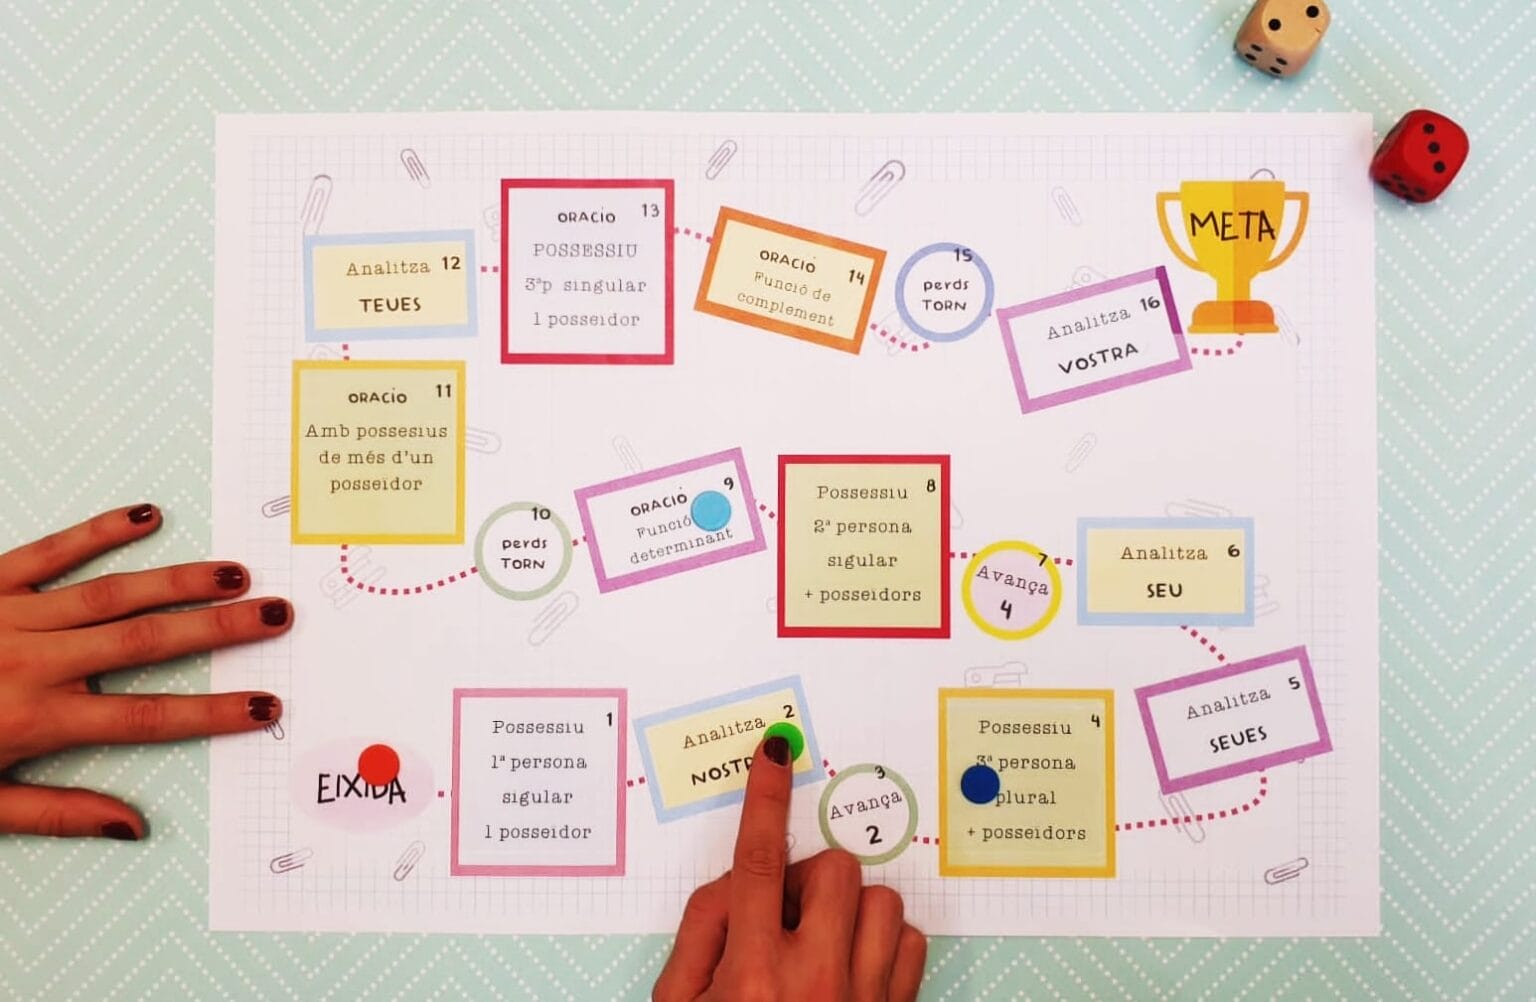 EIXIDA
1
Possessiu
1ª persona
sigular
1 posseïdor
2
Analitza
3
Avança
2
4
Possessiu
3ª persona
plural
+ posseïdors
5
Analitza
SEUES
6
Analitza
SEU
7
Avança
4
8
Possessiu
2ª persona
sigular
+ posseïdors
9
ORACIÓ
Funció
determinant
10
perds
TORN
11
ORACIO
Amb possesius
de més d'un
posseïdor
12
Analitza
TEUES
13
ORACIO
POSSESSIU
3ªp singular
1 posseïdor
14
ORACIO
Funció de
complement
15
perds
TORN
16
Analitza
VOSTRA
META